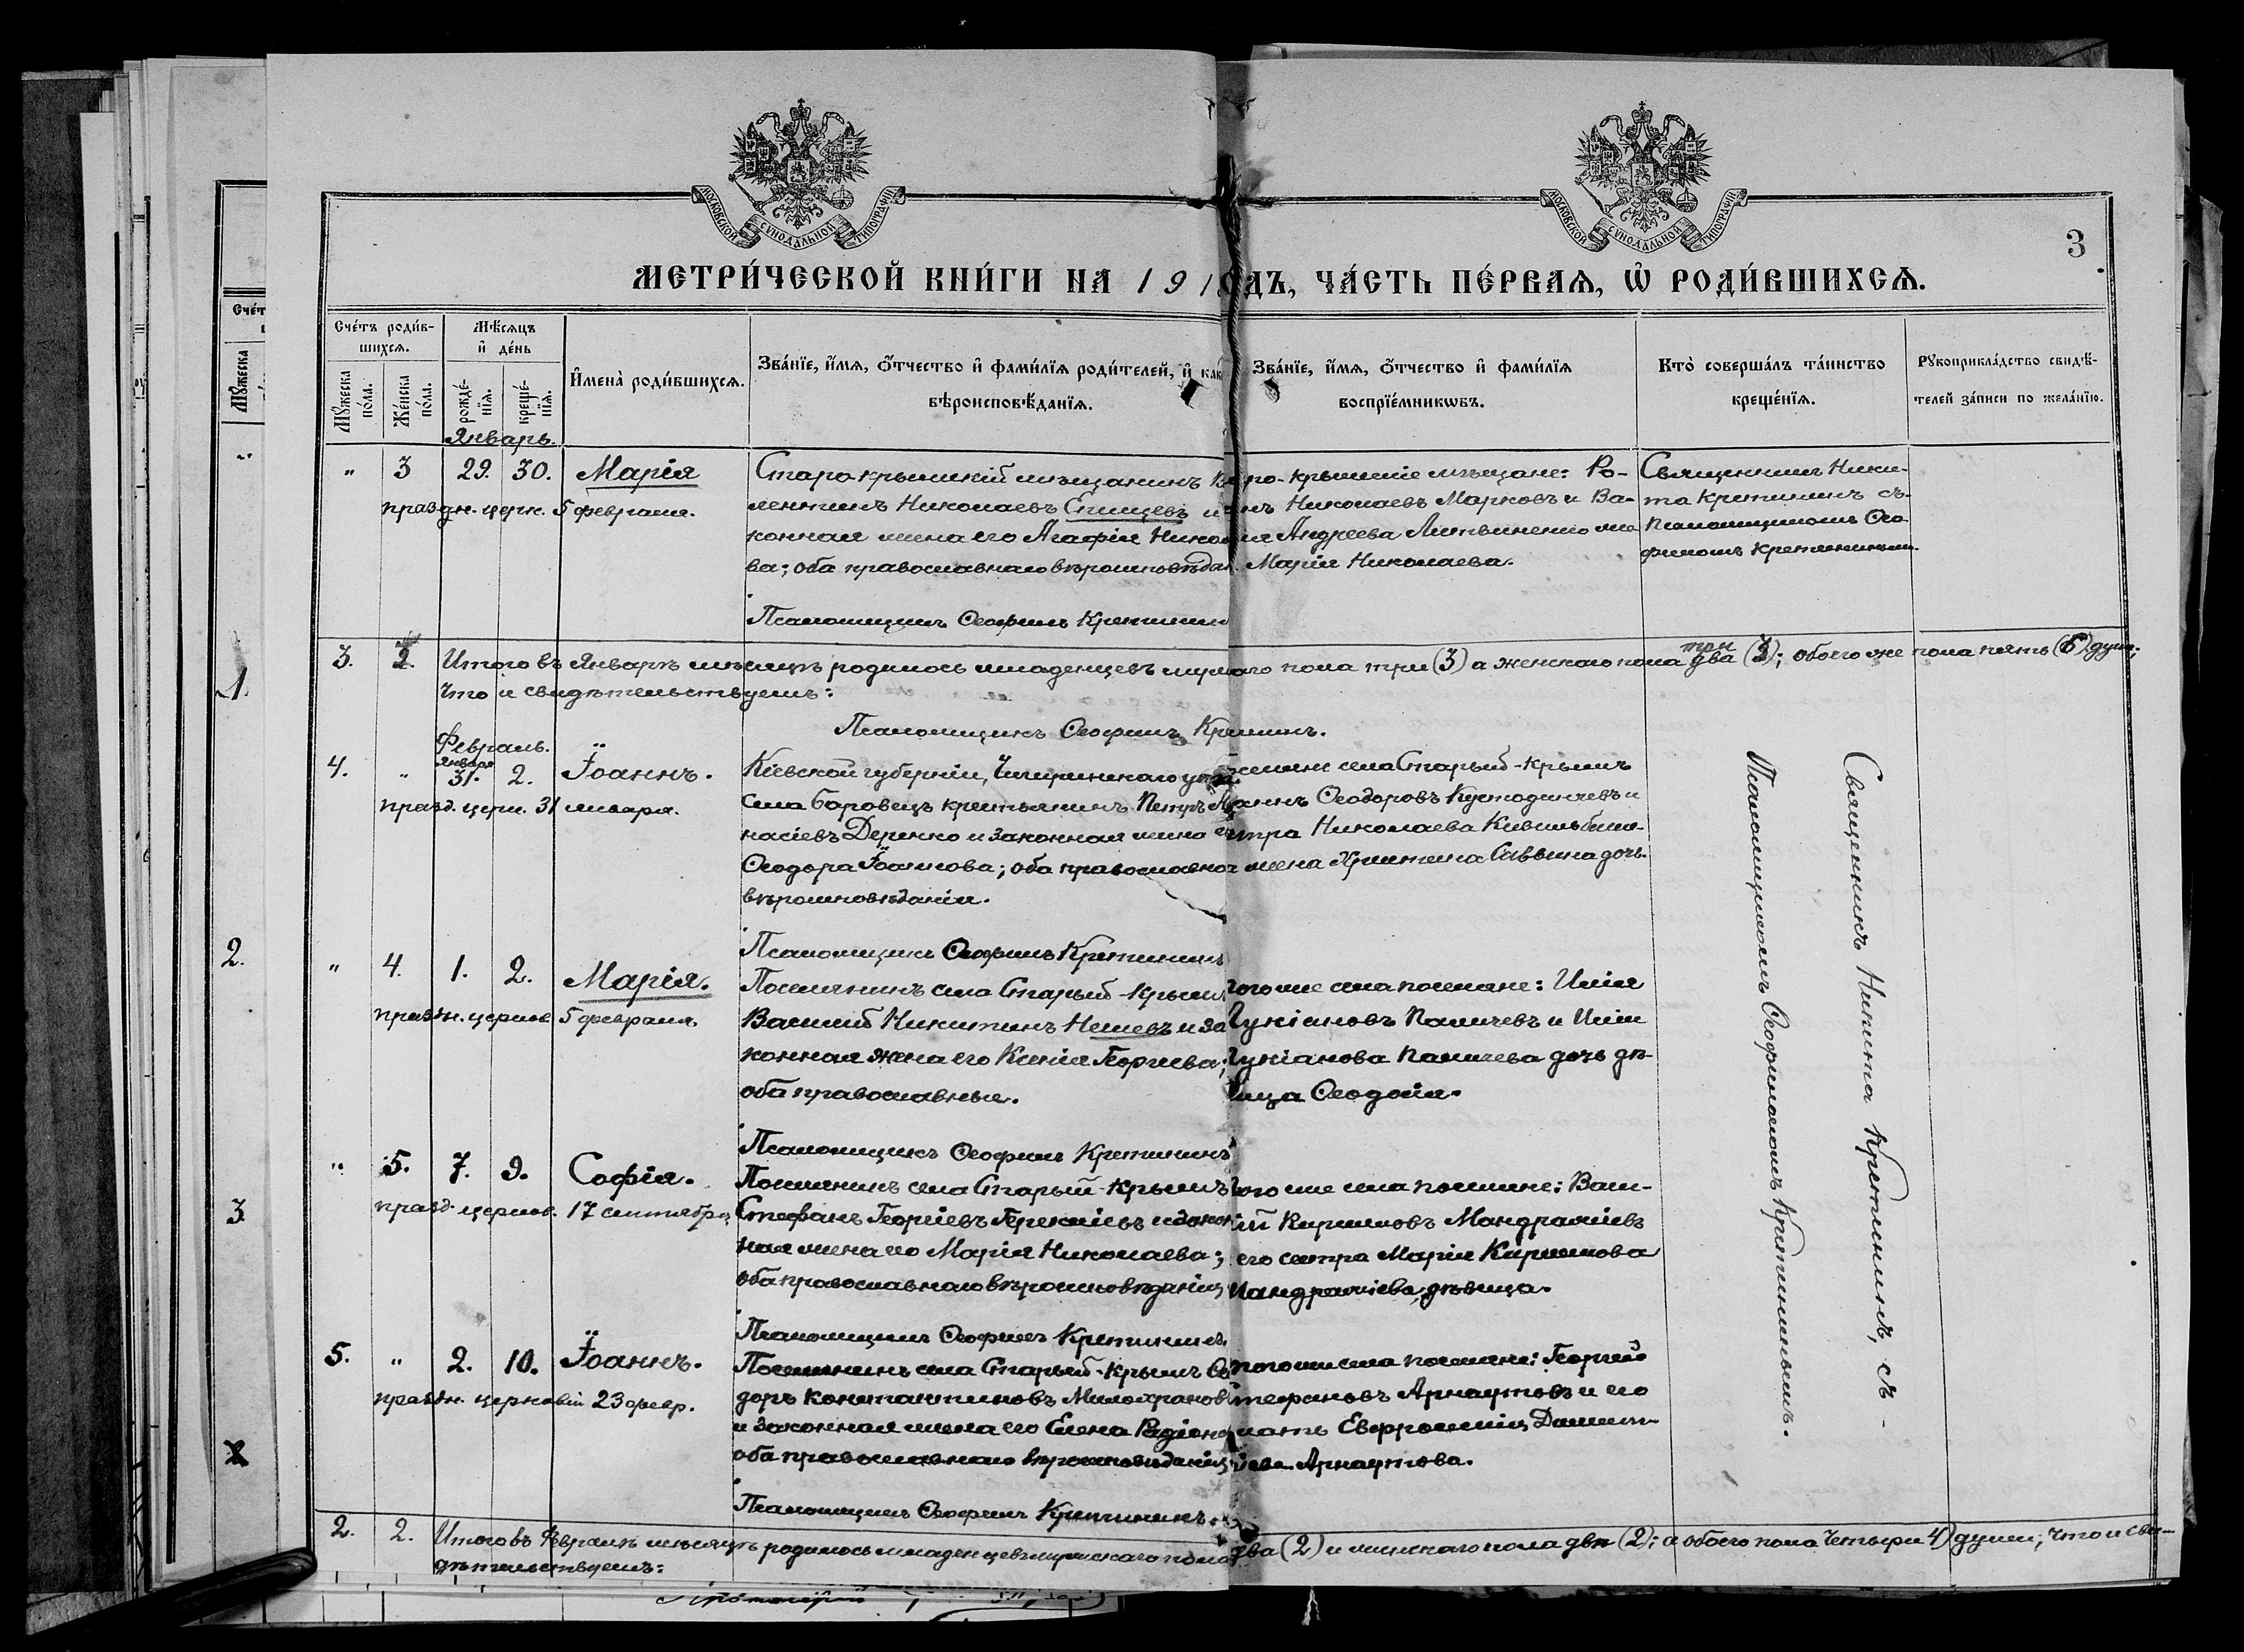 МОСКОВСКОЙ СѴНОДАЛЬНОЙ ТИПОГРАФІИ
МОСКОВСКОЙ СѴНОДАЛЬНОЙ ТИПОГРАФІИ
3
МЕТРИ́ЧЕСКОЙ КНИ́ГИ НА 191 ОДЪ, ЧА́СТЬ ПЕ́РВАѦ, Ѿ РОДИ́ВШИХСѦ.
Сче́тъ роди́в-
шихсѧ.
Мѣ́сѧцъ
и҆ де́нь
Мꙋ́жеска
по́ла.
Же́нска
по́ла.
рожде́-
нїѧ.
креще́-
нїѧ.
И҆мена̀ роди́вшихсѧ.
Зва́нїе, и҆́мѧ, ѻ҆́тчество и҆ фами́лїѧ роди́телей, и҆ как
вѣроисповѣ́данїѧ.
Зва́нїе, и҆́мѧ, ѻ҆́тчество и҆ фами́лїѧ
воспрїе́мникѡвъ.
Кто̀ соверша́лъ та́инство
креще́нїѧ.
Рꙋкоприкла́дство свидѣ́-
телей за́писи по жела́нїю.
Январь.
" 3 29. 30. Марія
праздн. церк. 5 февраля.
Старо-крымскій мѣщанинъ
лентинъ Николаевъ Спищевъ и
конная жена его Агафія Никола
ва; оба православнаго вѣроисповѣдан.
Псаломщикъ Ѳеофилъ Кретинин
ро-крымскіе мѣщане: Ро-
нъ Николаевъ Марковъ и Ва-
ія Андреева Литвиненко же
Марія Николаева.
Священникъ Ники-
та Кретининъ съ
Псаломщикомъ Ѳео
филомъ Кретининымъ.
3. 2. Итого въ Январѣ мѣсяцѣ родилось младенцевъ мужского пола три (3) а женскаго пола два три (3); обоего же пола пять (6) душ;
что и свидѣтельствуемъ:
Псаломщикъ Ѳеофилъ Кретинин.
Февраль.
Января
4. " 31. 2. Іоаннъ.
празд. церк. 31 января.
Кіевской губерніи, Чигиринскаго уѣз.
села Боровецъ крестьянинъ Петръ А
насіевъ Деренко и законная жена е
Ѳеодора Іоаннова; оба православног
вѣроисповѣданія.
Псаломщикъ Ѳеофилъ Кретининъ
селяне села Старый-Крымъ
аннъ Ѳеодоровъ Кустодинчевъ и
етра Николаева
жена Христина Саввина дочь.
Священникъ Никита Кретининъ, съ -
Псаломщикомъ Ѳеофиломъ Кретининымъ.
" 4. 1. 2. Марія.
праздн. церков. 5 февраля
Поселянинъ села Старый-Крым
Василій Никитинъ Нешевъ и за
конная жена его Ксенія Георгіева;
оба православные.
Псаломщикъ Ѳеофилъ Кретининъ
того же села поселяне: Илія
Лукіановъ Паничевъ и Иліи
Лукіанова Паничева дочь дѣ-
вица Ѳеодосія.
" 5. 7. 9. Софія.
празд. церков. 17 сентября
Поселянинъ села Старый-Крымъ
Стефанъ Георгіевъ и закон
ная жена его Марія Николаева;
оба православнаго вѣроисповѣданія
Псаломщикъ Ѳеофилъ Кретининъ.
того же села поселяне: Васи-
лій Кирилловъ Мандражіевъ
его сестра Марія Кириллова
Мандражіева, дѣвица.
5. " 2. 10. Іоаннъ.
праздн. церковію 23 февр.
Поселянинъ села Старый-Крымъ Ѳео
доръ Константиновъ
и законная жена его Елена Радіоно
оба православнаго вѣроисповѣданія
Псаломщикъ Ѳеофилъ Кретининъ.
того же села поселяне: Георгій
Стефановъ Арнаутовъ и его
мать Евфросинія
Арнаутова.
2. 2. Итого въ Февралѣ мѣсяцѣ родилось младенцевъ мужескаго пола два (2) и женскаго пола двѣ (2); а обоего пола четыри 4) души, что и сви-
дѣтельствуемъ:
Сче́т
Мꙋ́жеска
1.
2.
3